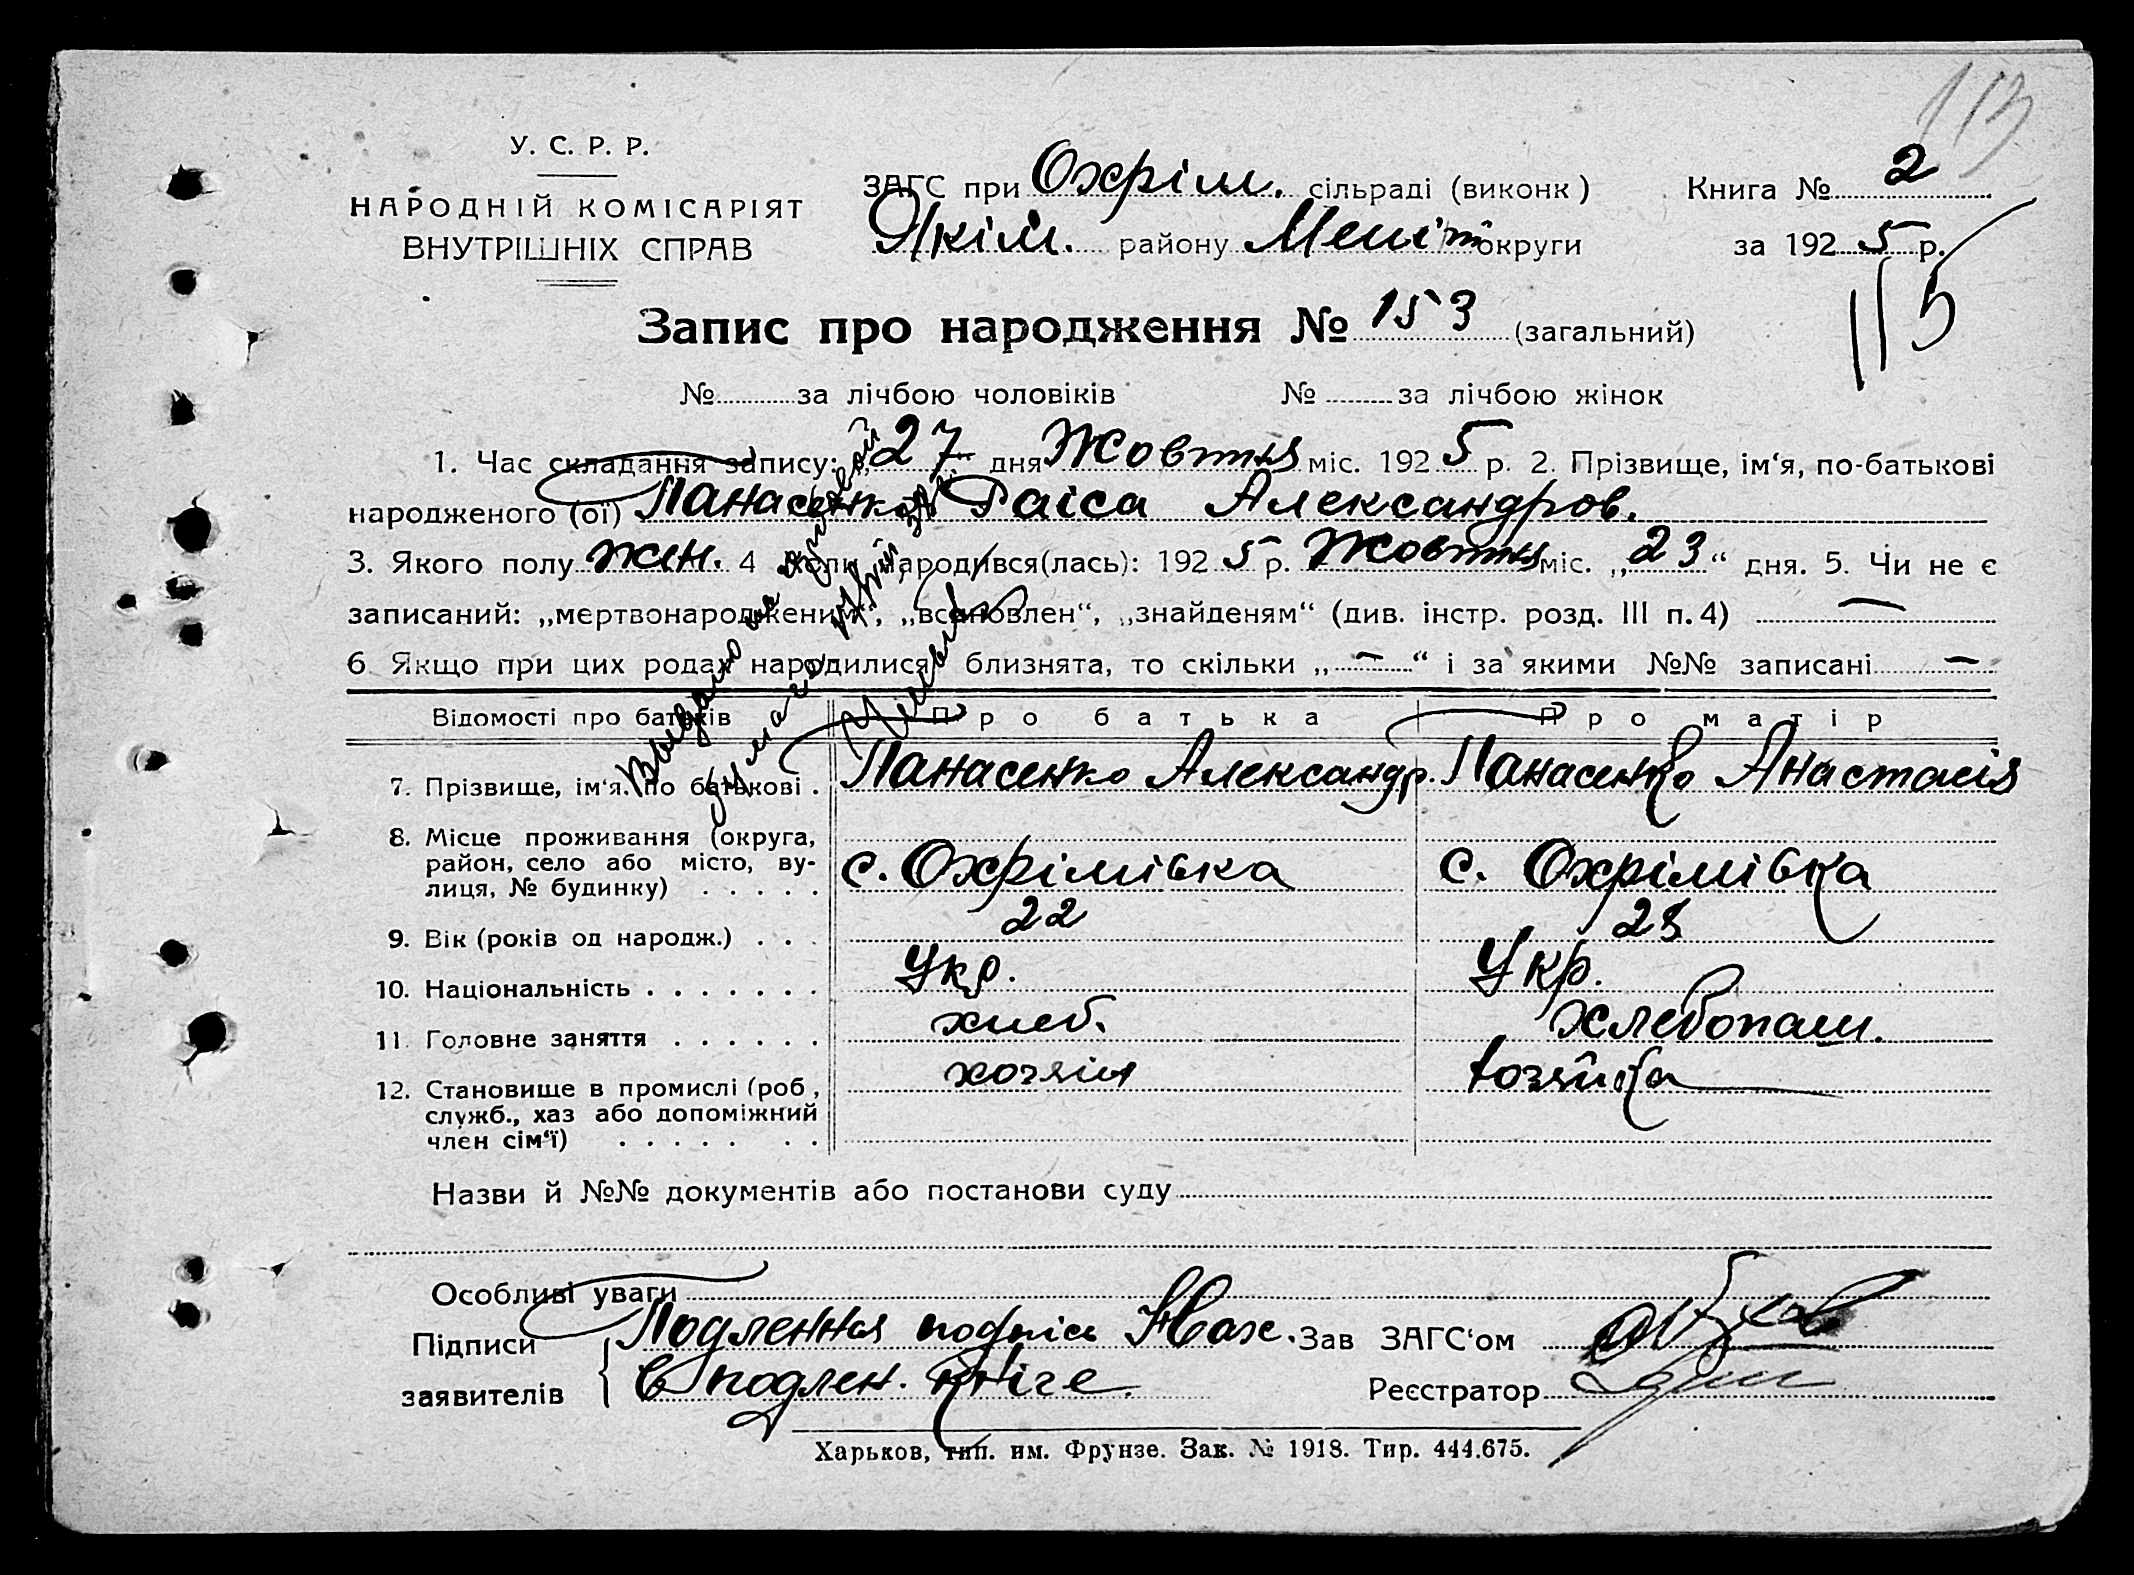 113
У. С. Р. Р.
НАРОДНІЙ КОМІСАРІЯТ
ВНУТРІШНІХ СПРАВ
ЗАГС при Охрім. сільраді (виконк)
Якім. району Меліт округи
Книга № 2
за 1925 р.
115
Запис про народження № 153 (загальний)
№ за лічбою чоловіків № за лічбою жінок
1. Час складання запису: 27 дня Жовтня міс. 1925 р. 2. Прізвище, ім‘я, по-батькові
народженого (ої) Панасенко Раіса Александров.
3. Якого полу жен. 4 Коли народився(лась): 1925 р. Жовтня міс. „23“ дня. 5. Чи не є
записаний: „мертвонародженим“, „всиновлен“, „знайденям“ (див. інстр. розд. III п. 4) —
6 Якщо при цих родах народилися близнята, то скільки „—“ і за якими №№ записані —
Відомості про батьків Про батька Про матір
7. Прізвище, ім‘я. по батькові . Панасенко Александр. Панасенко Анастасія
8. Місце проживання (округа,
район, село або місто, ву-
лиця, № будинку) . . . . . с. Охрімівка с. Охрімівка
9. Вік (років од народж.) . . . 22
10. Національність . . . . . . . Укр. Укр.
11. Головне заняття . . . . . . хлеб. хлебопаш.
12. Становище в промислі (роб,
служб., хаз або допоміжний
член сім‘ї) . . . . . . . хозяін хозяйка
Назви й №№ документів або постанови суду
Особливі уваги
Підписи
заявителів
Подленная подпісь
в подлен. кніге.
Зав ЗАГС‘ом
Реєстратор
Харьков, тип. им. Фрунзе. Зак. № 1918. Тир. 444.675.